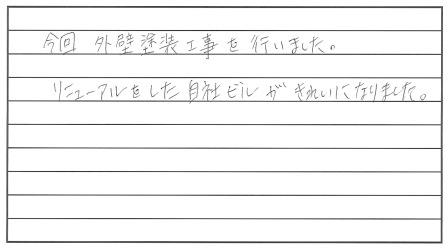 今回 外壁塗装工事を行いました。
リニューアルをした自社ビルがきれいになりました。